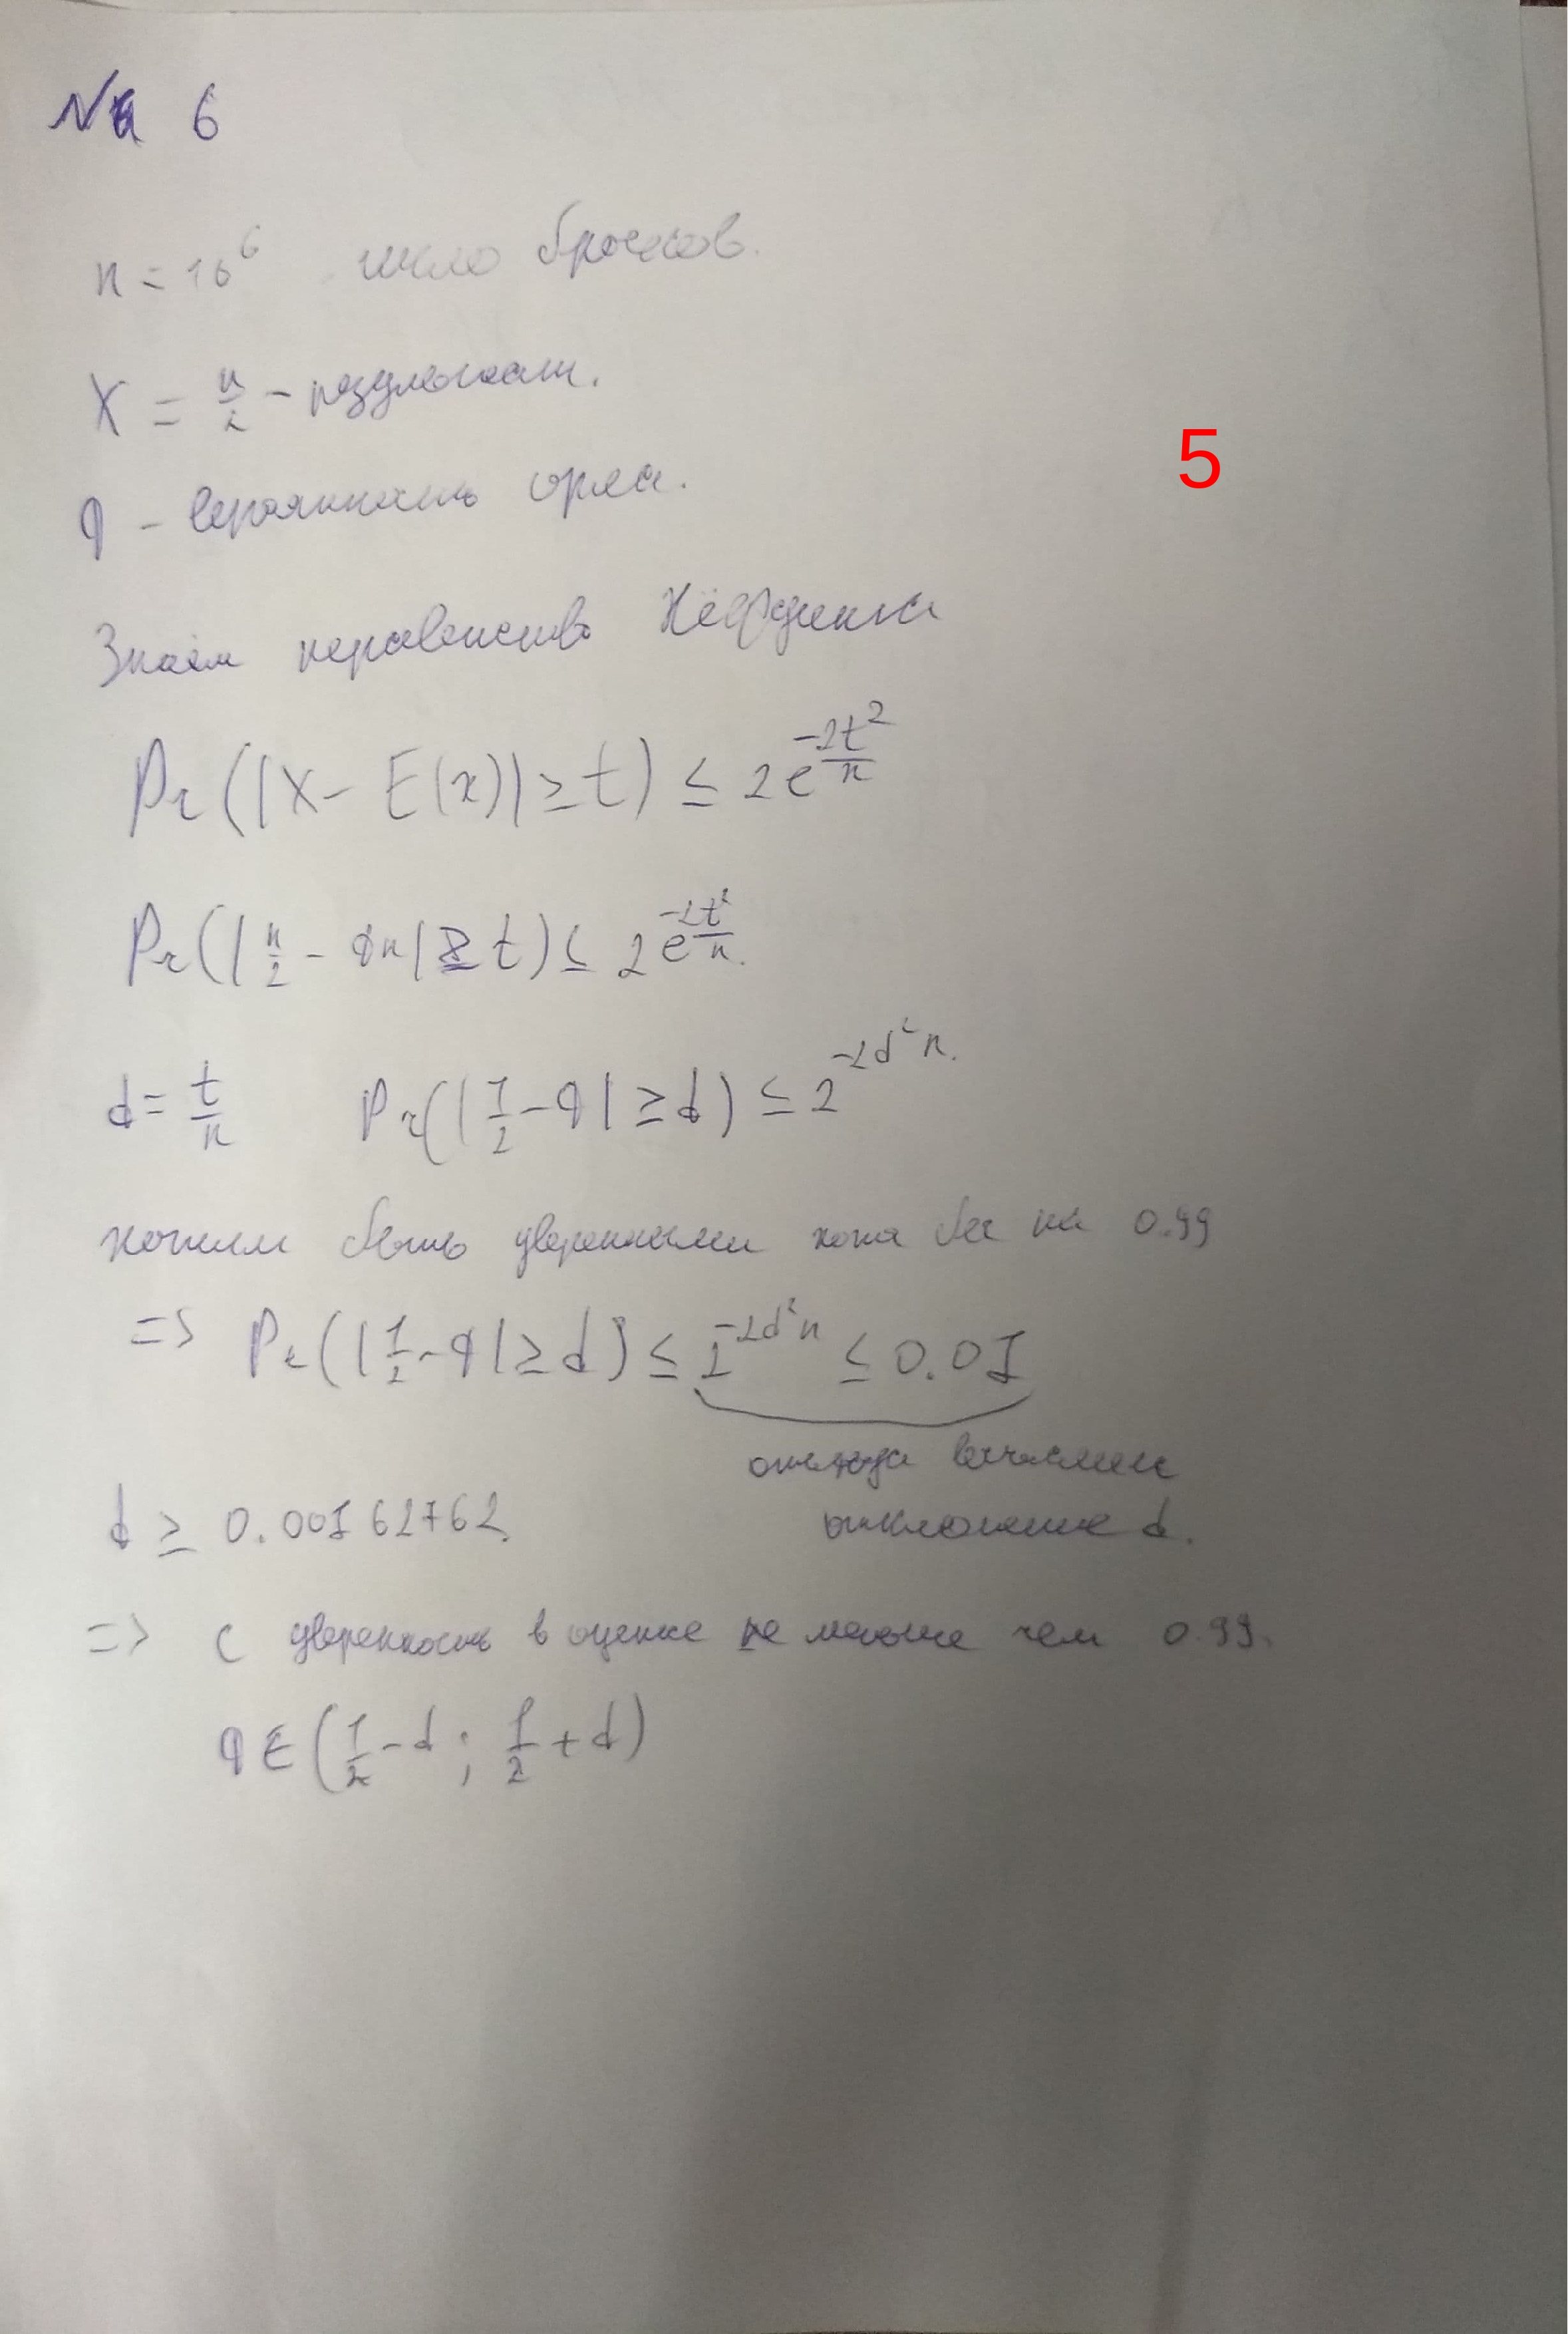 № 6
n = 10^6 число бросков.
X = n/2 - результат.
q - вероятность орла.
5
Знаем неравенство Хёфдинга
Pr(|X - E(x)| ≥ t) ≤ 2e^(-2t^2/n)
Pr(|n/2 - qn| ≥ t) ≤ 2e^(-2t^2/n).
d = t/n Pr(|1/2 - q| ≥ d) ≤ 2^(-2d^2 n).
хотим быть уверенными хотя бы на 0.99
=> Pr(|1/2 - q| ≥ d) ≤ 2^(-2d^2 n) ≤ 0.01
отсюда вычислим
d ≥ 0.00162762
отклонение d.
=> С уверенность в оценке не меньше чем 0.99.
q ∈ (1/2 - d ; 1/2 + d)